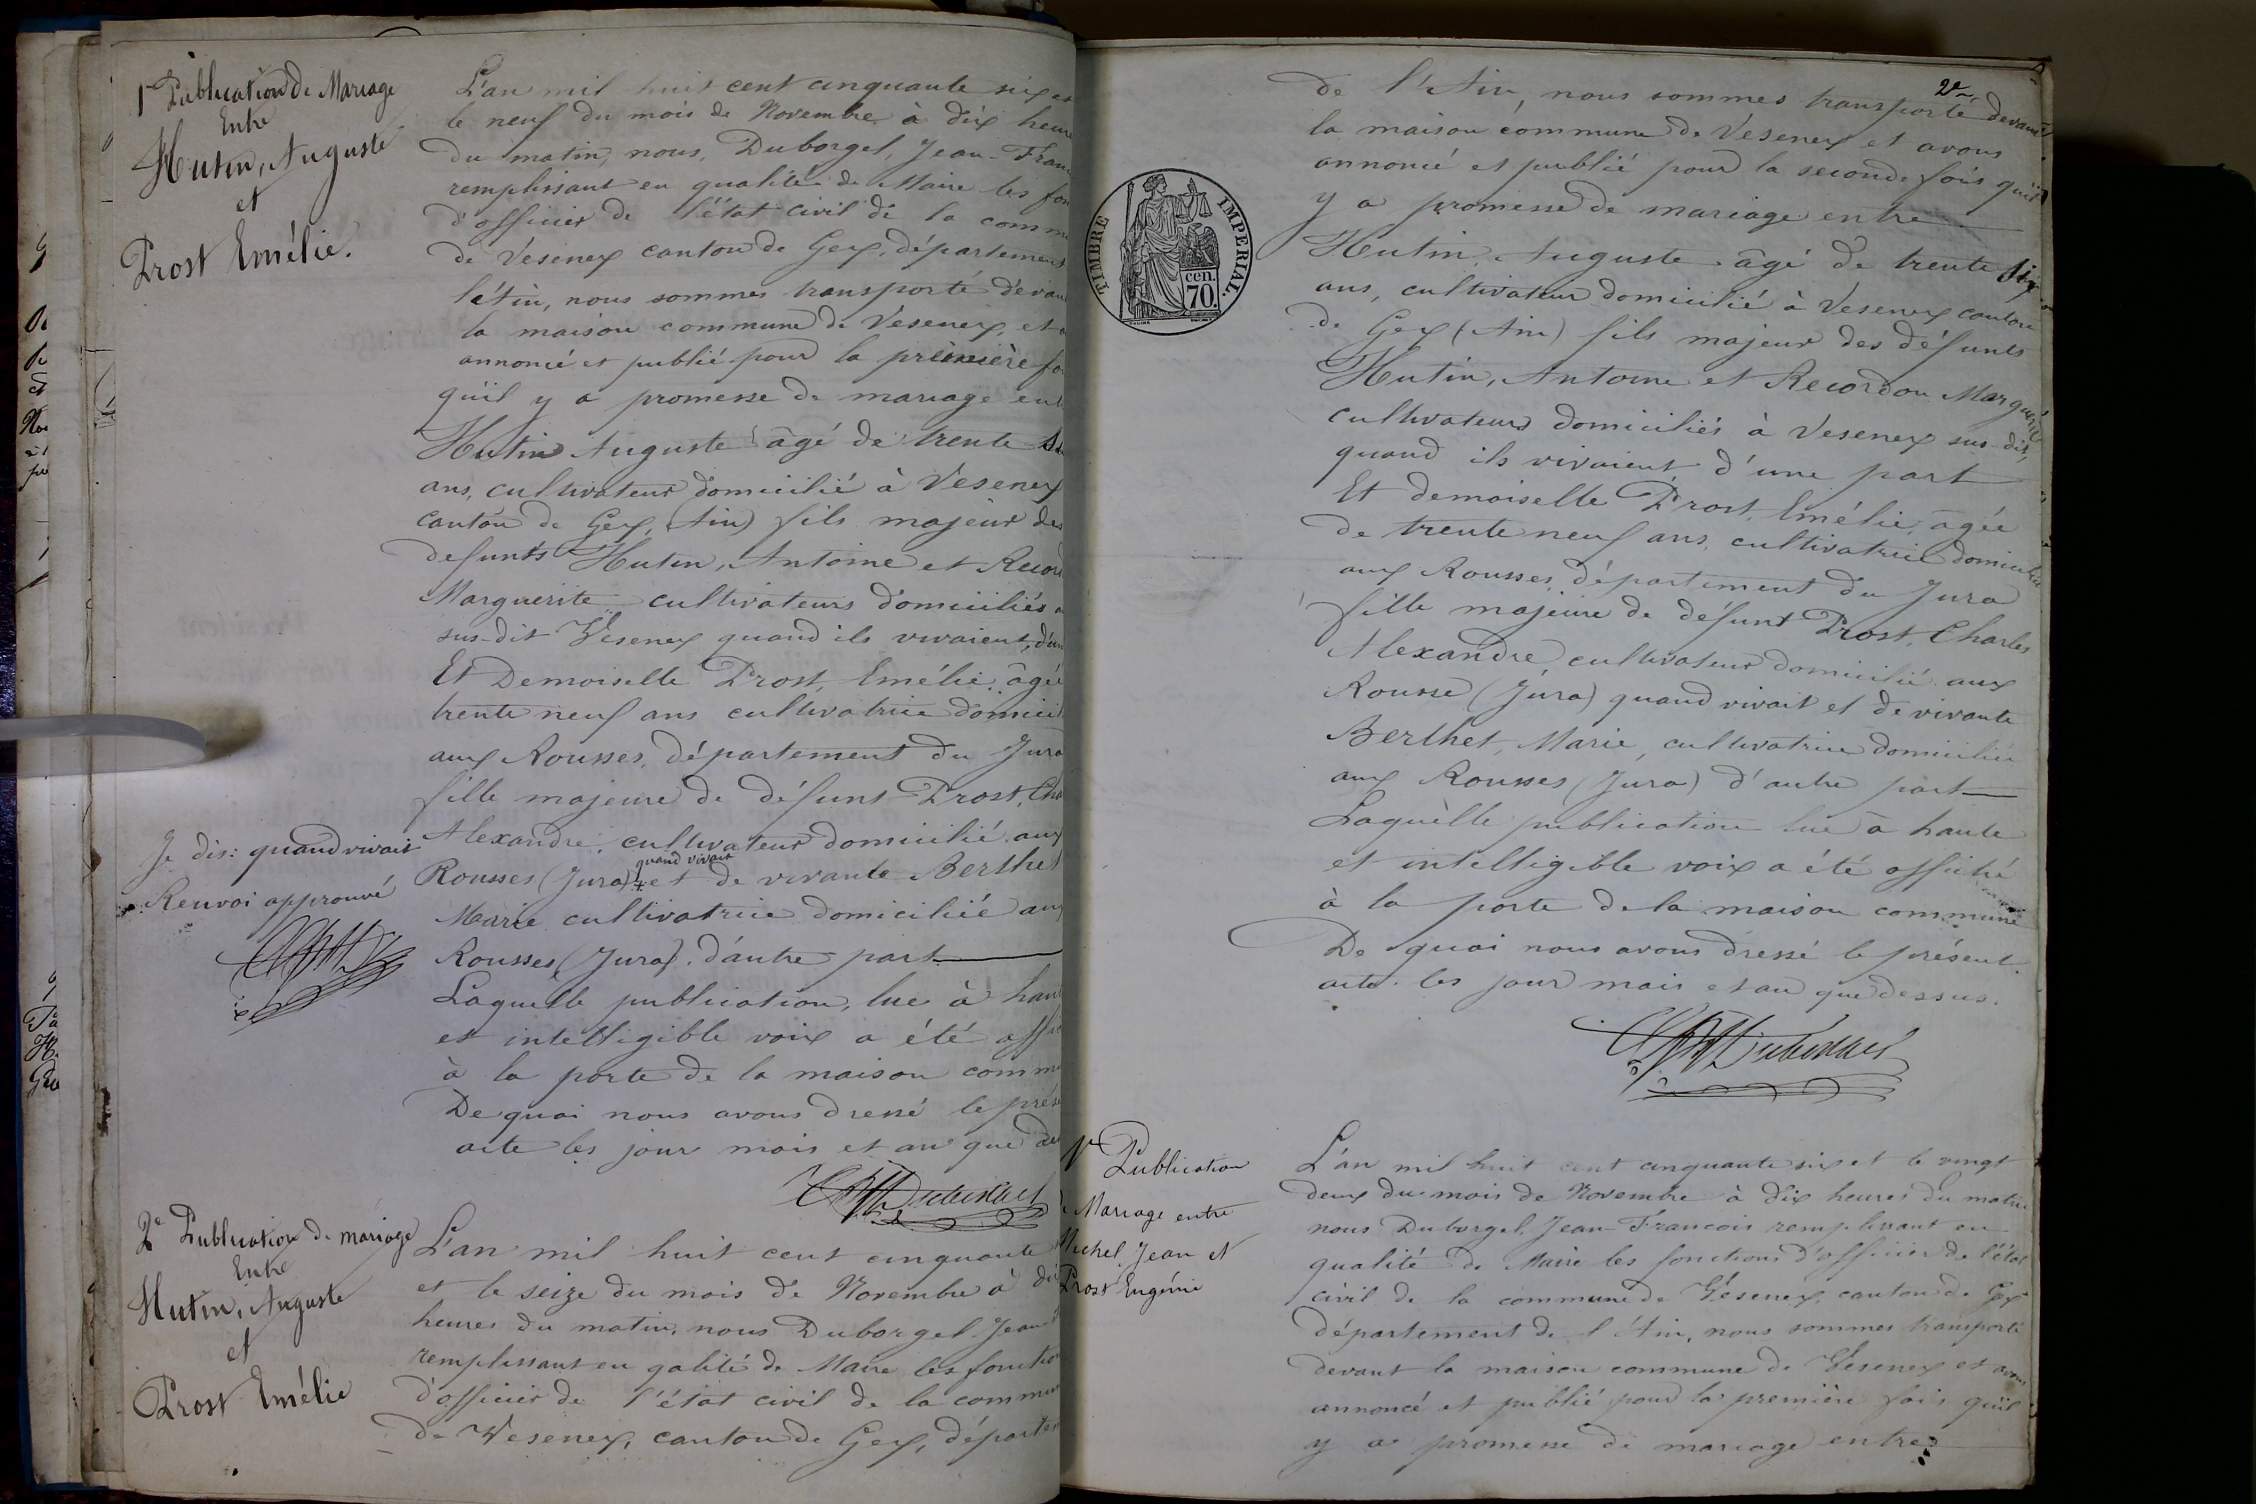 1re Publication de Mariage
Entre
Hutin, Auguste
et
Prost Emélie.
L'an mil huit cent cinquante six et
le neuf du mois de Novembre à dix heure
du matin, nous, Duborgel, Jean-Fran
remplissant en qualité de Maire les fon
d'officier de l'état-civil de la comm
de Vesenex canton de Gex, département
l'étin, nous sommes transporté devan
la maison commune de Vesenex, et a
annoncé et publié pour la première fo
qu'il y a promesse de mariage ent
Hutin Auguste âgé de trente si
ans, cultivateur domicilié à Vesenex
canton de Gex, (Ain) fils majeur des
defunts Hutin, Antoine et Record
Marguerite cultivateurs domiciliés a
sus-dit Vesenex quand ils vivaient, d'un
Et Demoiselle Prost, Emélie, âgée
trente neuf ans cultivatrice domicil
aux Rousses, département du Jura
fille majeure de défunt Prost, Cha
Alexandre, cultivateur domicilié aux
quand vivait
Rousses (Jura) + et de vivante Berthet
Marie cultivatrice domiciliée aux
Rousses (Jura). d'autre part
Laquelle publication, lue à haut
et intelligible voix a été affi
à la porte de la maison comm
De quoi nous avons dressé le prése
acte les jour mois et an que des
Je dis: quand vivait
Renvoi approuvé
Duborgel
2e Publication de mariage
Entre
Hutin, Auguste
et
Prost Emélie
L'an mil huit cent cinquante
et le seize du mois de Novembre à di
heures du matin, nous Duborgel Jean
remplissant en qalité de Maire les fonction
d'officier de l'état civil de la commun
de Vesenex, canton de Gex, départem
2e
de l'Ain, nous sommes transporté devant
la maison commune de Vésenex et avons
annoncé et publié pour la seconde fois qu'il
y a promesse de mariage entre
Hutin, Auguste âgé de trente six
ans, cultivateur domicilié à Vesenex canton
de Gex (Ain) fils majeur des défunts
Hutin, Antoine et Recordon Marguerite
cultivateurs domiciliés à Vesenex sus-dit,
quand ils vivaient d'une part
Et demoiselle Prost, Emélie, âgée
de trente neuf ans, cultivatrice domiciliée
aux Rousses, département du Jura
fille majeure de défunt Prost, Charles
Alexandre, cultivateur domicilié aux
Rousse (Jura) quand vivait et de vivante
Berthet, Marie, cultivatrice domiciliée
aux Rousses (Jura) d'autre part
Laquelle publication lue à haute
et intelligible voix a été affiché
à la porte de la maison commune
De quoi nous avons dressé le présent
acte les jour mois et an que dessus.
TIMBRE IMPERIAL.
cen.
70.
Duborgel
1re Publication
de Mariage entre
Michel Jean et
Prost Eugénie
L'an mil huit cent cinquante six et le vingt
deux du mois de Novembre à dix heures du matin
nous Duborgel, Jean-François remplissant en
qualité de Maire les fonctions d'officier de l'état
civil de la commune de Vésenex, canton de Gex
département de l'Ain, nous sommes transporté
devant la maison commune de Vesenex et avons
annoncé et publié pour la première fois qu'il
y a promesse de mariage entre